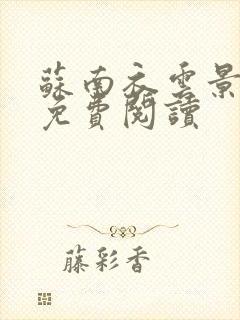 蘇南衣雲景
免費閱讀
藤彩香